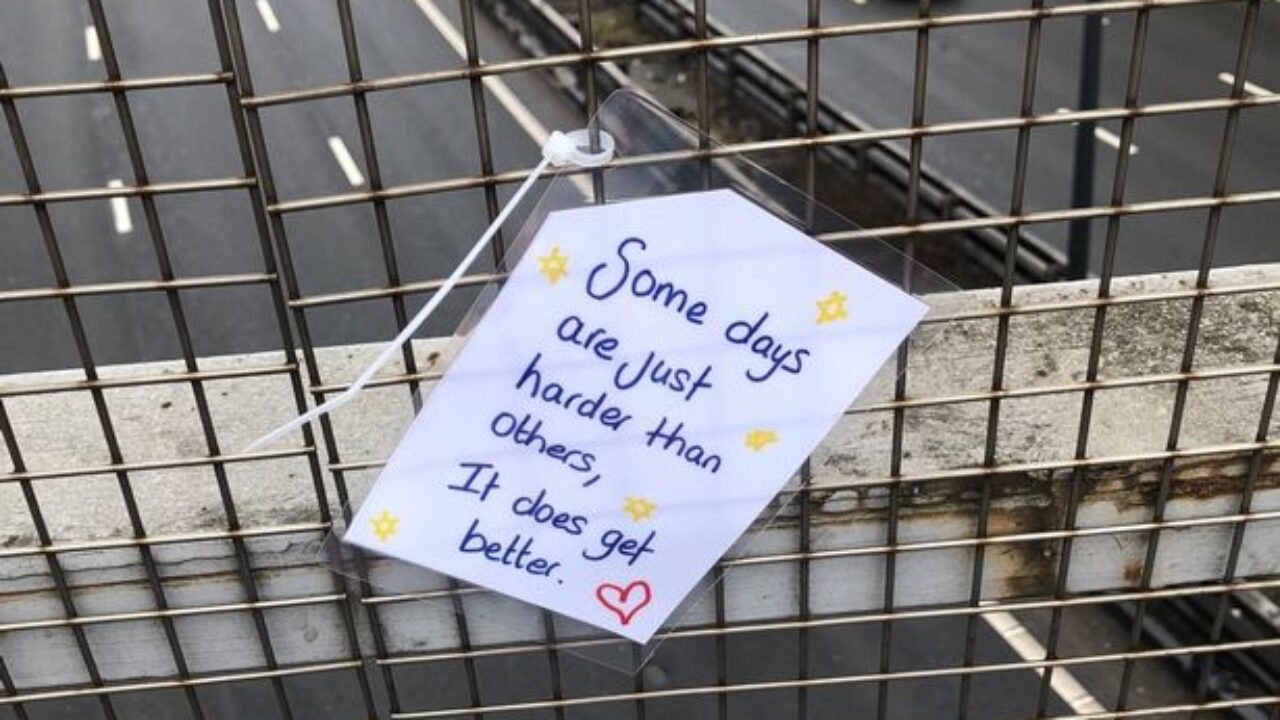 Some days
are just
harder than
others,
It does get
better.